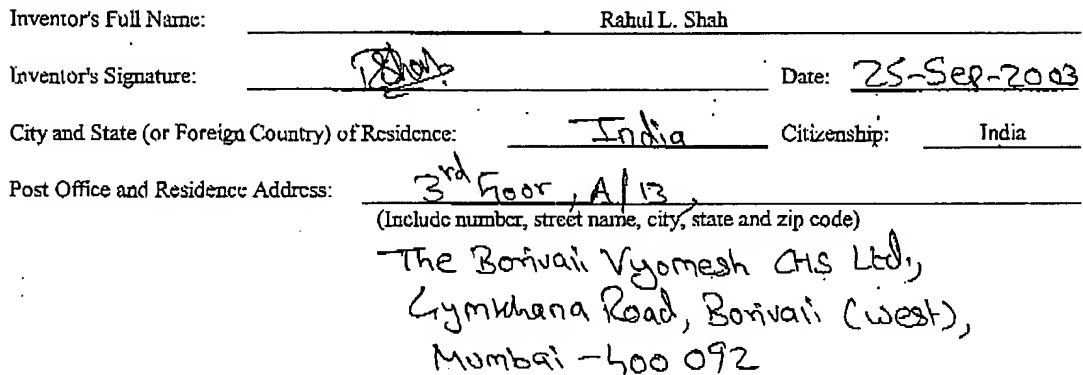 Inventor's Full Name: Rahul L. Shah
Inventor's Signature: RShah Date: 25-Sep-2003
City and State (or Foreign Country) of Residence: India Citizenship: India
Post Office and Residence Address: 3rd Floor, A/13,
(Include number, street name, city, state and zip code)
The Borivali Vyomesh CHS Ltd.,
Gymkhana Road, Borivali (west),
Mumbai - 400 092